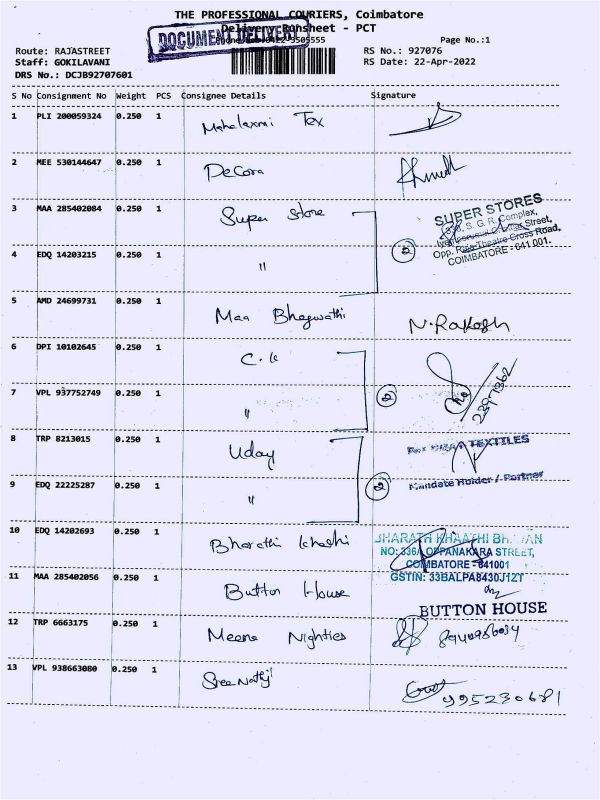 THE PROFESSIONAL COURIERS, Coimbatore
Delivery Runsheet - PCT
DOCUMENT DELIVERY
Page No.:1
Route: RAJASTREET
RS No.: 927076
Staff: GOKILAVANI
RS Date: 22-Apr-2022
DRS No.: DCJB92707601
S No Consignment No Weight PCS Consignee Details Signature
1 PLI 200059324 0.250 1 Mahalaxmi Tex
2 MEE 530144647 0.250 1 DeCora Ahmed
3 MAA 285402084 0.250 1 Super Store
SUPER STORES
S. G. R. Complex,
Street,
Opp. Raja Theatre Cross Road,
COIMBATORE - 641 001.
2
4 EDQ 14203215 0.250 1 "
5 AMD 24699731 0.250 1 Maa Bhagwathi N.Rakesh
6 DPI 10102645 0.250 1 C.K
2
7 VPL 937752749 0.250 1 "
8 TRP 8213015 0.250 1 Uday
TEXTILES
Mandate Holder / Partner
2
9 EDQ 22225287 0.250 1 "
10 EDQ 14202693 0.250 1 Bharathi Khadhi
BHARATH KHAATHI
NO: 336A OPPANAKARA STREET,
COIMBATORE - 641001
GSTIN: 33BALPA8430J1ZT
11 MAA 285402056 0.250 1 Button House
BUTTON HOUSE
12 TRP 6663175 0.250 1 Meena Nighties
13 VPL 938663080 0.250 1 Sree Nathji 995230681